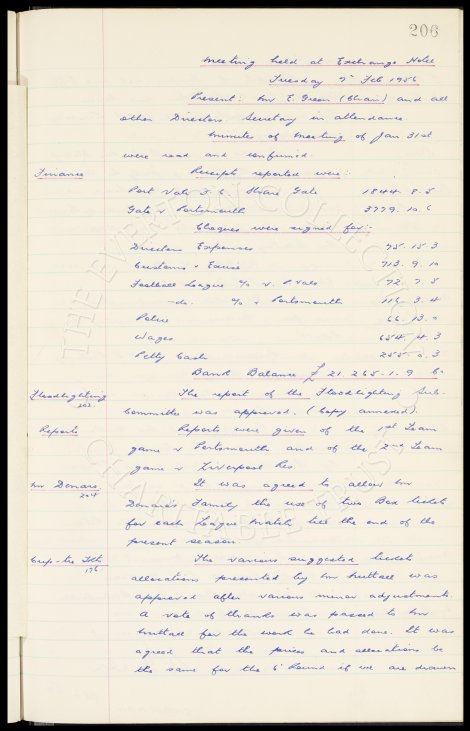 206
Meeting held at Exchange Hotel
Tuesday 7th Feb 1956
Present: Mr E. Green (Chair) and all
other Directors. Secretary in attendance.
Minutes of Meeting of Jan 31st
were read and confirmed.
Finance Receipts reported were:
Port Vale F.C. Share Gate 1844. 8. 5
Gate v Portsmouth 3779. 10. 6
Cheques were signed for:-
Directors Expenses 75. 15. 3
Customs & Excise 713. 9. 10
Football League % v. P. Vale 72. 7. 5
-do- % v Portsmouth 116. 3. 4
Police 66. 13. 0
Wages 654. 4. 3
Petty Cash 255. 0. 3
Bank Balance £ 21,265. 1. 9
Floodlighting The report of the Floodlighting Sub.
202 Committee was approved. (Copy annexed).
Reports Reports were given of the 1st Team
game v Portsmouth and of the 2nd Team
game v Liverpool Res
Mr Donars. It was agreed to allow Mr
204 Donars's Family the use of two Box tickets
for each League Match till the end of the
present season.
Cup-tie Tkts The various suggested tickets
allocations presented by Mr Nuttall was
approved after various minor adjustments.
A vote of thanks was passed to Mr
Nuttall for the work he had done. It was
agreed that the prices and allocations be
the same for the 6th Round if we are drawn
THE EVERTON COLLECTION
CHARITABLE TRUST